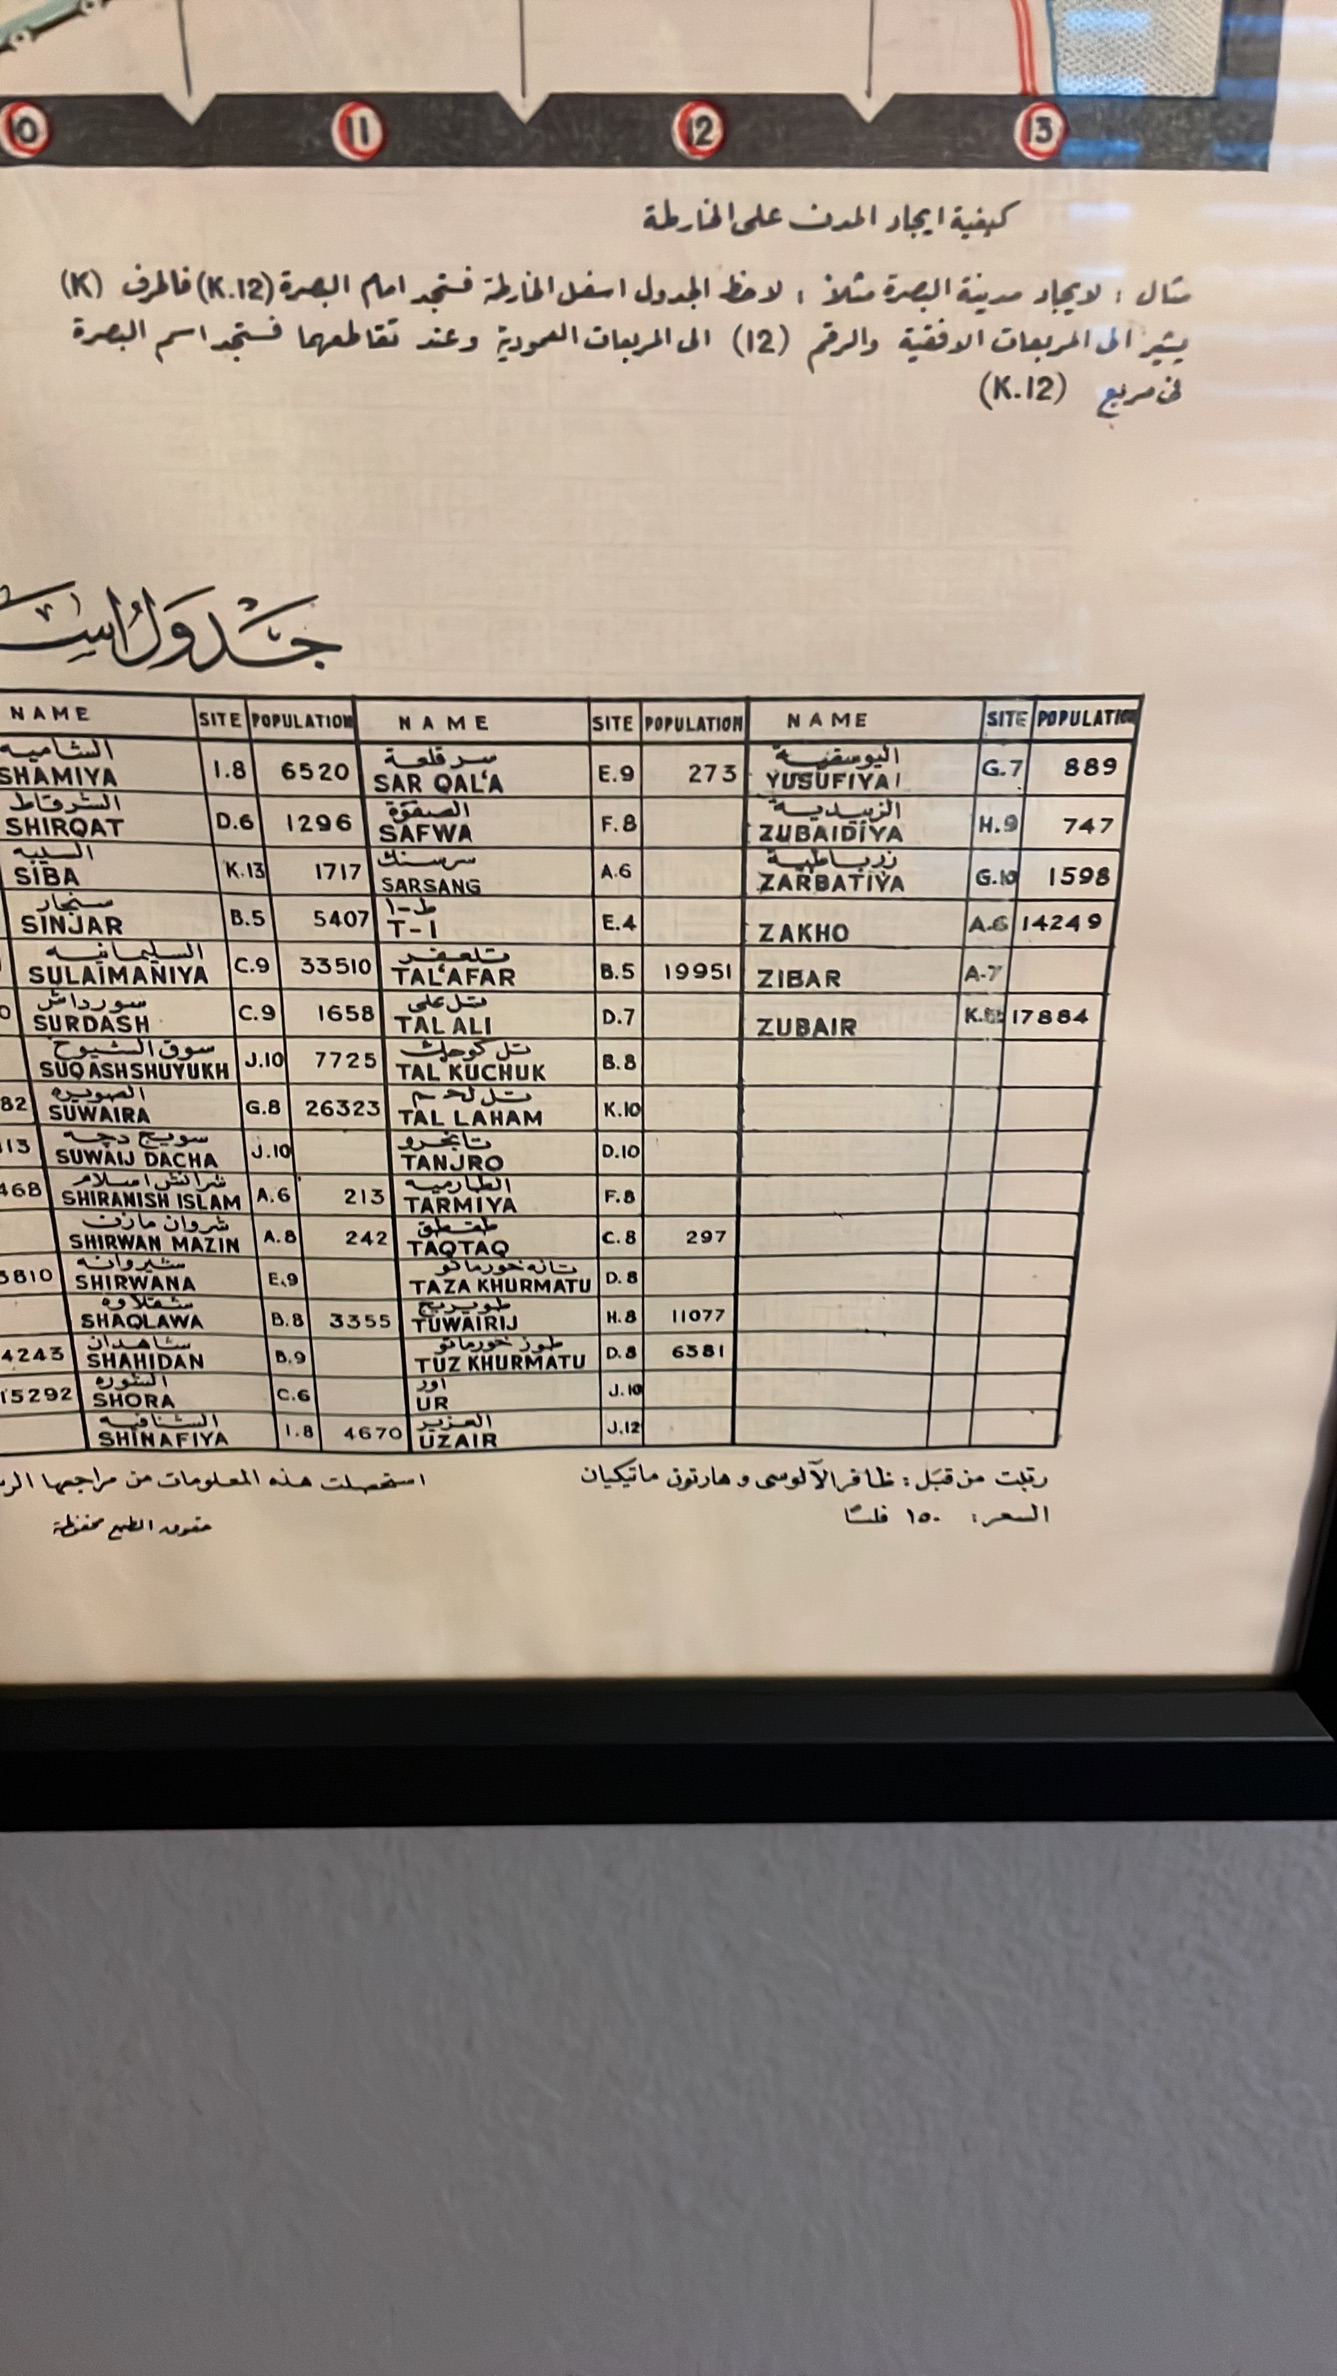 10 11 12 13
كيفية ايجاد المدن على الخارطة
مثال : لايجاد مدينة البصرة مثلاً ، لاحظ الجدول اسفل الخارطة فستجد امام البصرة (K.12) فالحرف (K)
يشير الى المربعات الافقية والرقم (12) الى المربعات العمودية وعند تقاطعهما فستجد اسم البصرة
في مربع (K.12)
جَدْوَلُ
NAME SITE POPULATION NAME SITE POPULATION NAME SITE POPULATIO
الشاميه سر قلعة اليوسفية
SHAMIYA I.8 6520 SAR QAL'A E.9 273 YUSUFIYA G.7 889
الشرقاط الصفوة الزبيدية
SHIRQAT D.6 1296 SAFWA F.8 ZUBAIDIYA H.9 747
السيبه سرسنك زرباطية
SIBA K.13 1717 SARSANG A.6 ZARBATIYA G.10 1598
سنجار ط-١
SINJAR B.5 5407 T-1 E.4 ZAKHO A.6 14249
السليمانيه تلعفر
SULAIMANIYA C.9 33510 TAL'AFAR B.5 19951 ZIBAR A.7
سورداش تل على
SURDASH C.9 1658 TAL ALI D.7 ZUBAIR 17884
سوق الشيوخ تل كوجك
SUQ ASHSHUYUKH J.10 7725 TAL KUCHUK B.8
الصويره تل لحم
82 SUWAIRA G.8 26323 TAL LAHAM K.10
سويج دجه تانجرو
113 SUWAIJ DACHA J.10 TANJRO D.10
شرانش اسلام الطارميه
468 SHIRANISH ISLAM A.6 213 TARMIYA F.8
شروان مازن طقطق
SHIRWAN MAZIN A.8 242 TAQTAQ C.8 297
شيروانه تازه خورماتو
3810 SHIRWANA E.9 TAZA KHURMATU D.8
شقلاوه طويريج
SHAQLAWA B.8 3355 TUWAIRIJ H.8 11077
شاهدان طوز خورماتو
4243 SHAHIDAN B.9 TUZ KHURMATU D.8 6381
الشوره اور
15292 SHORA C.6 UR J.10
الشنافيه العزير
SHINAFIYA I.8 4670 UZAIR J.12
رتبت من قبل : ظافر الآلوسى و هارتون ماتيكيان استحصلت هذه المعلومات من مراجعها
السعر : ١٥٠ فلسًا حقوق الطبع محفوظة